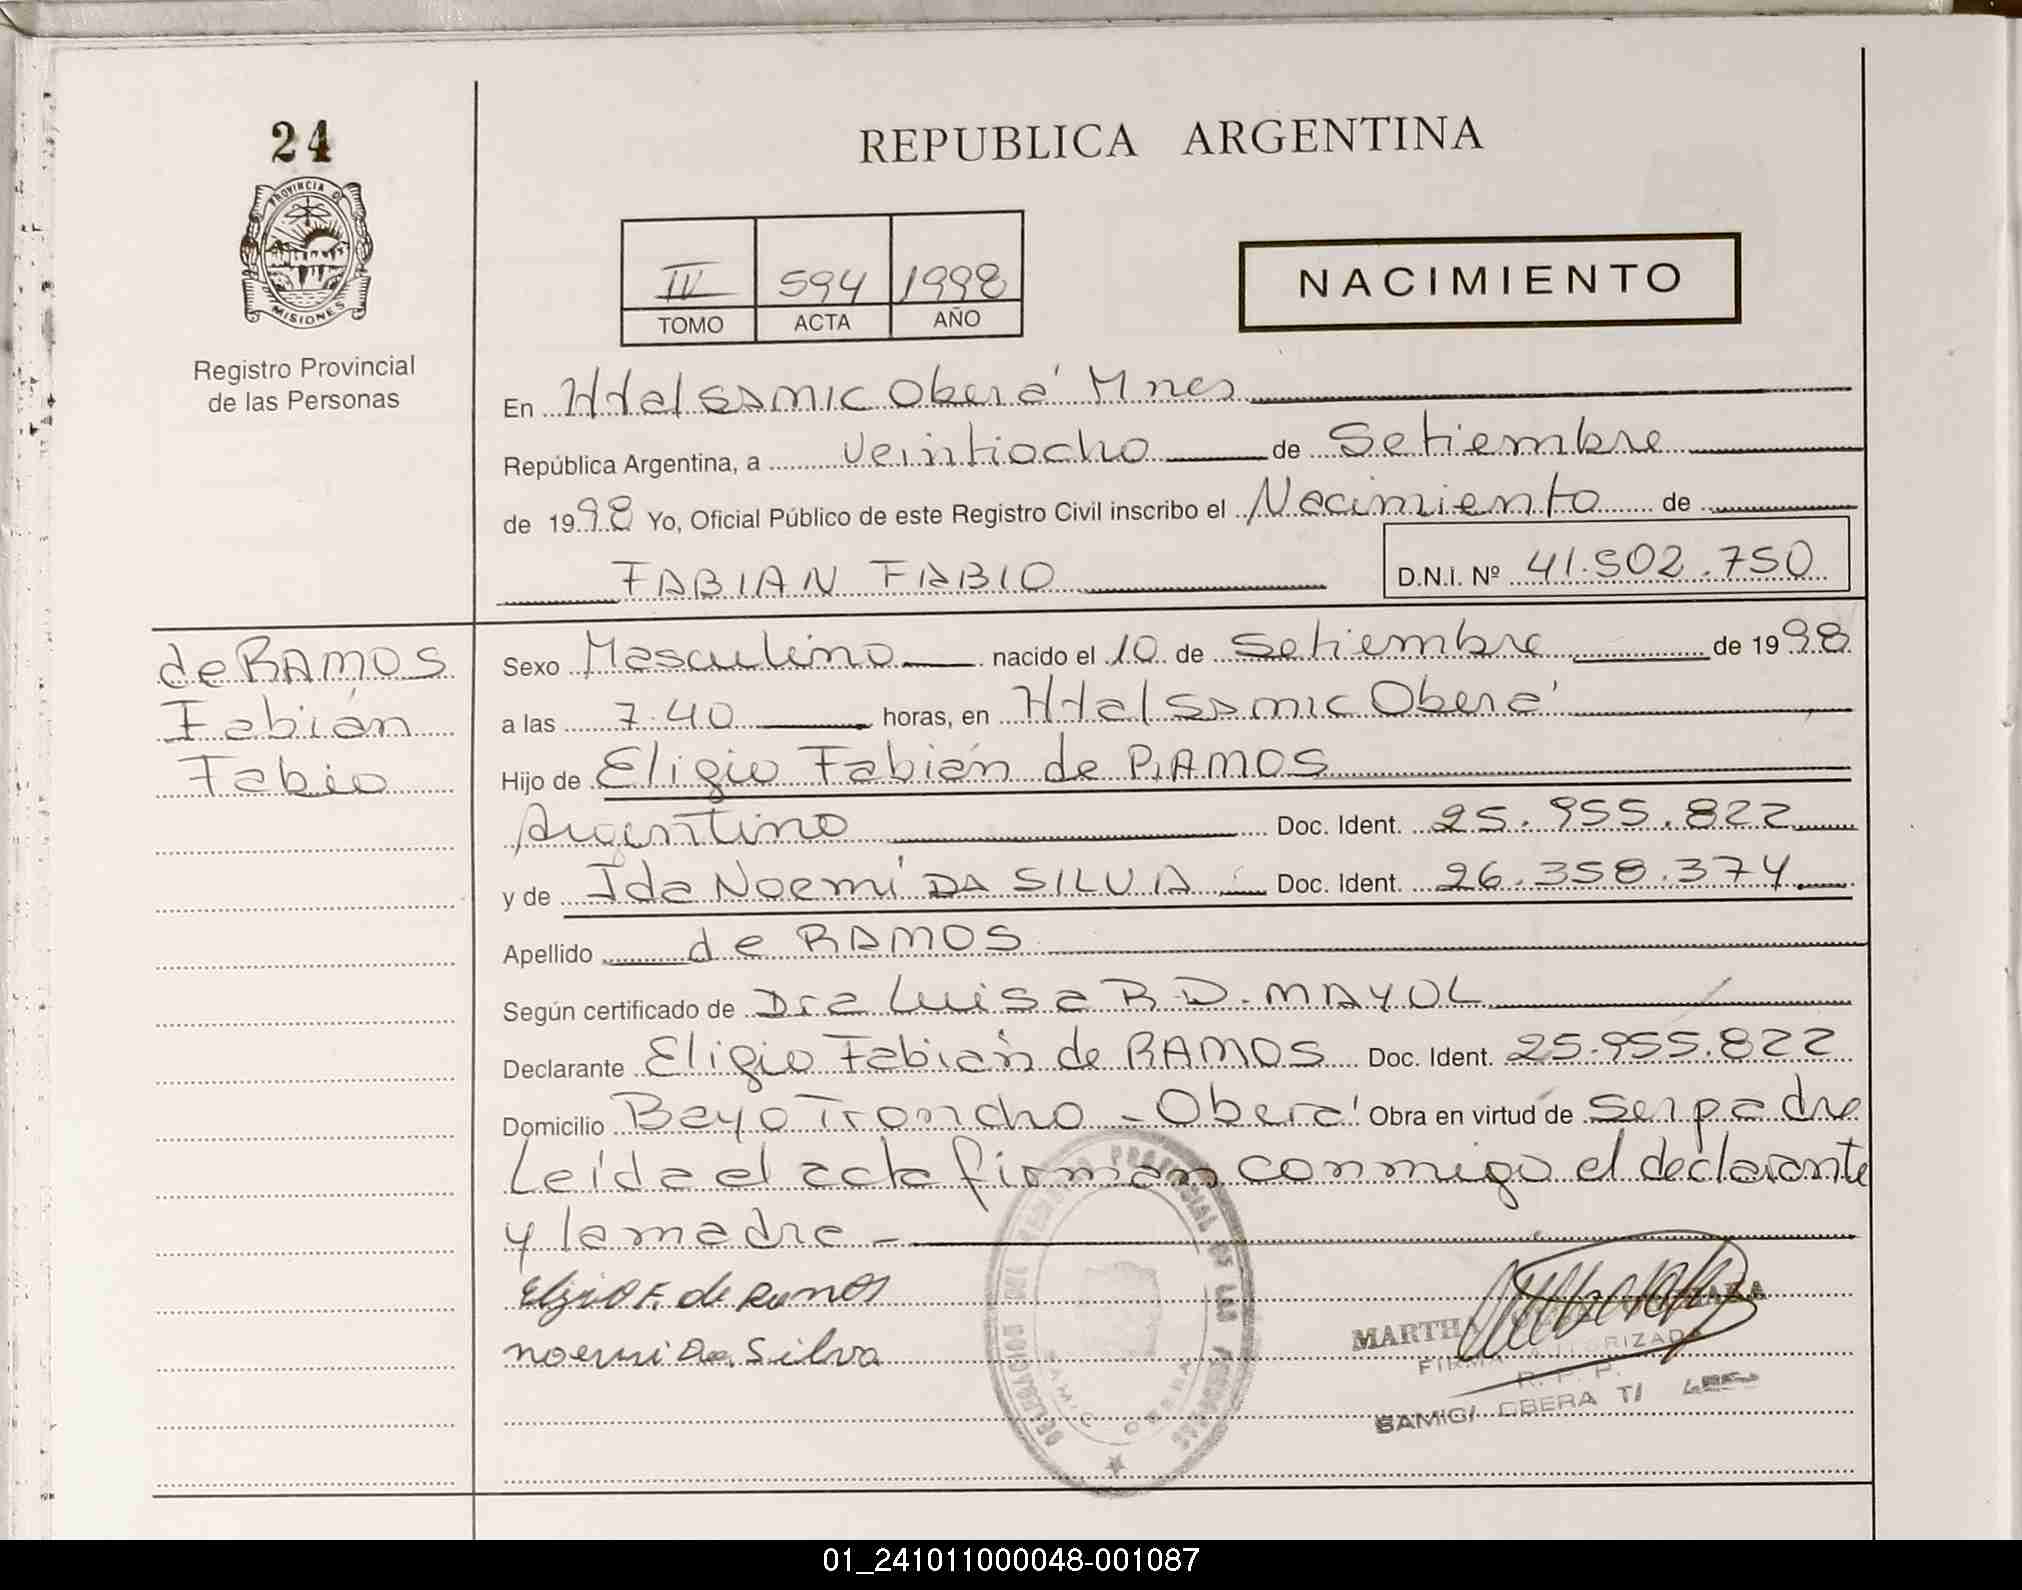 24
PROVINCIA D
MISIONES
Registro Provincial
de las Personas
REPUBLICA ARGENTINA
IV 594 1998
TOMO ACTA AÑO
NACIMIENTO
En Htal SAMIC Oberá Mnes
República Argentina, a veintiocho de Setiembre
de 1998 Yo, Oficial Público de este Registro Civil inscribo el Nacimiento de
FABIAN FABIO D.N.I. Nº 41.502.750
de RAMOS
Fabián
Fabio
Sexo Masculino nacido el 10 de Setiembre de 1998
a las 7.40 horas, en Htal SAMIC Oberá
Hijo de Eligio Fabián de RAMOS
Argentino Doc. Ident. 25.955.822
y de Ida Noemí DA SILVA Doc. Ident. 26.358.374
Apellido de RAMOS
Según certificado de Dra Luisa R.D. MAYOL
Declarante Eligio Fabián de RAMOS Doc. Ident. 25.955.822
Domicilio Bayo Troncho - Oberá Obra en virtud de ser padre
Leída el acta firman conmigo el declarante
y la madre -
Eligio F. de Ramos
noemi Da Silva
DELEGACION DEL REGISTRO PROVINCIAL DE LAS PERSONAS
SAMIC OBERA
MARTHA
FIRMA AUTORIZADA
R. P. P.
SAMIC/ OBERA T/
01_241011000048-001087